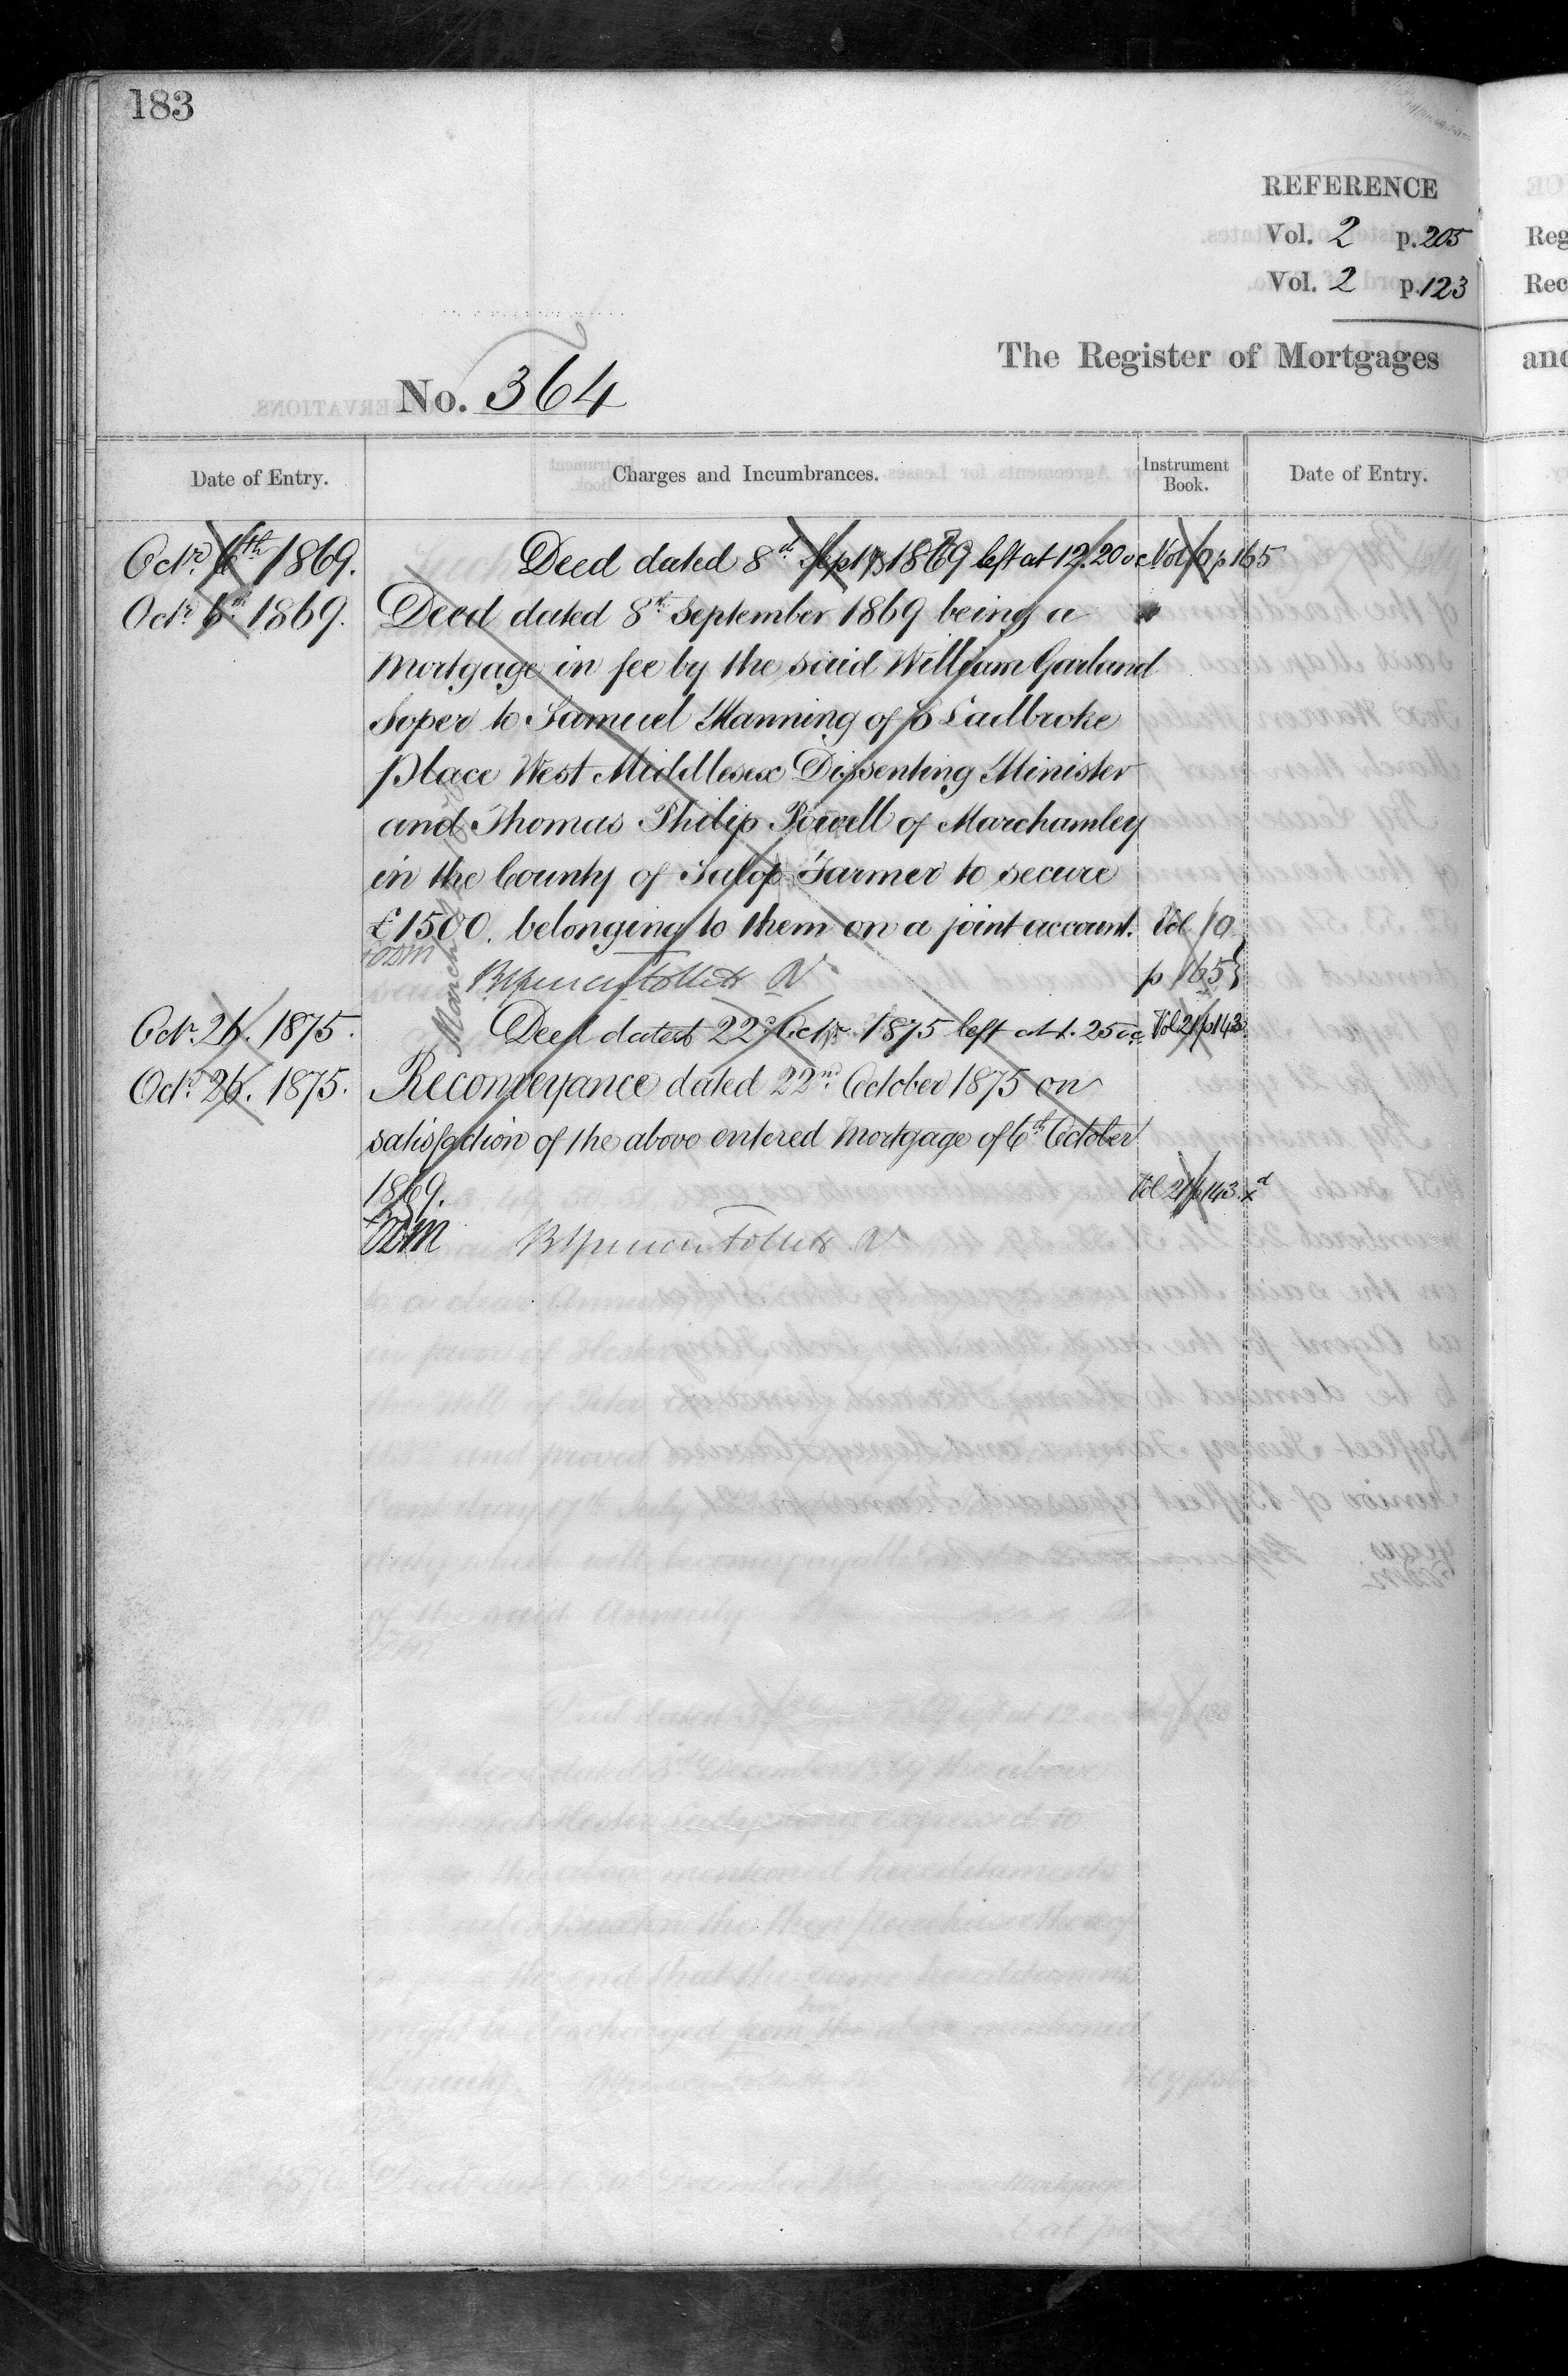 183
REFERENCE
Vol. 2 p. 205
Vol. 2 p. 123
The Register of Mortgages
No. 364
Date of Entry.
Charges and Incumbrances.
Instrument Book.
Date of Entry.
Octr. 6th 1869. Deed dated 8th Sept 1869 left at 12.20 oc Vol 10 p 165
Octr. 6th 1869. Deed dated 8th September 1869 being a
Mortgage in fee by the said William Garland
Soper to Samuel Manning of Ladbroke
Place West Middlesex Dissenting Minister
and Thomas Philip Powell of Marchamley
in the County of Salop Farmer to secure
£1500. belonging to them on a joint account. Vol 10
p 165
March
Octr. 26. 1875. Deed dated 22d Octr. 1875 left at 1.25 oc Vol 21 p 143
Octr. 26. 1875. Reconveyance dated 22nd October 1875 on
satisfaction of the above entered Mortgage of 6th October
1869. Vol 21 p 143 xd
Reg
Rec
and